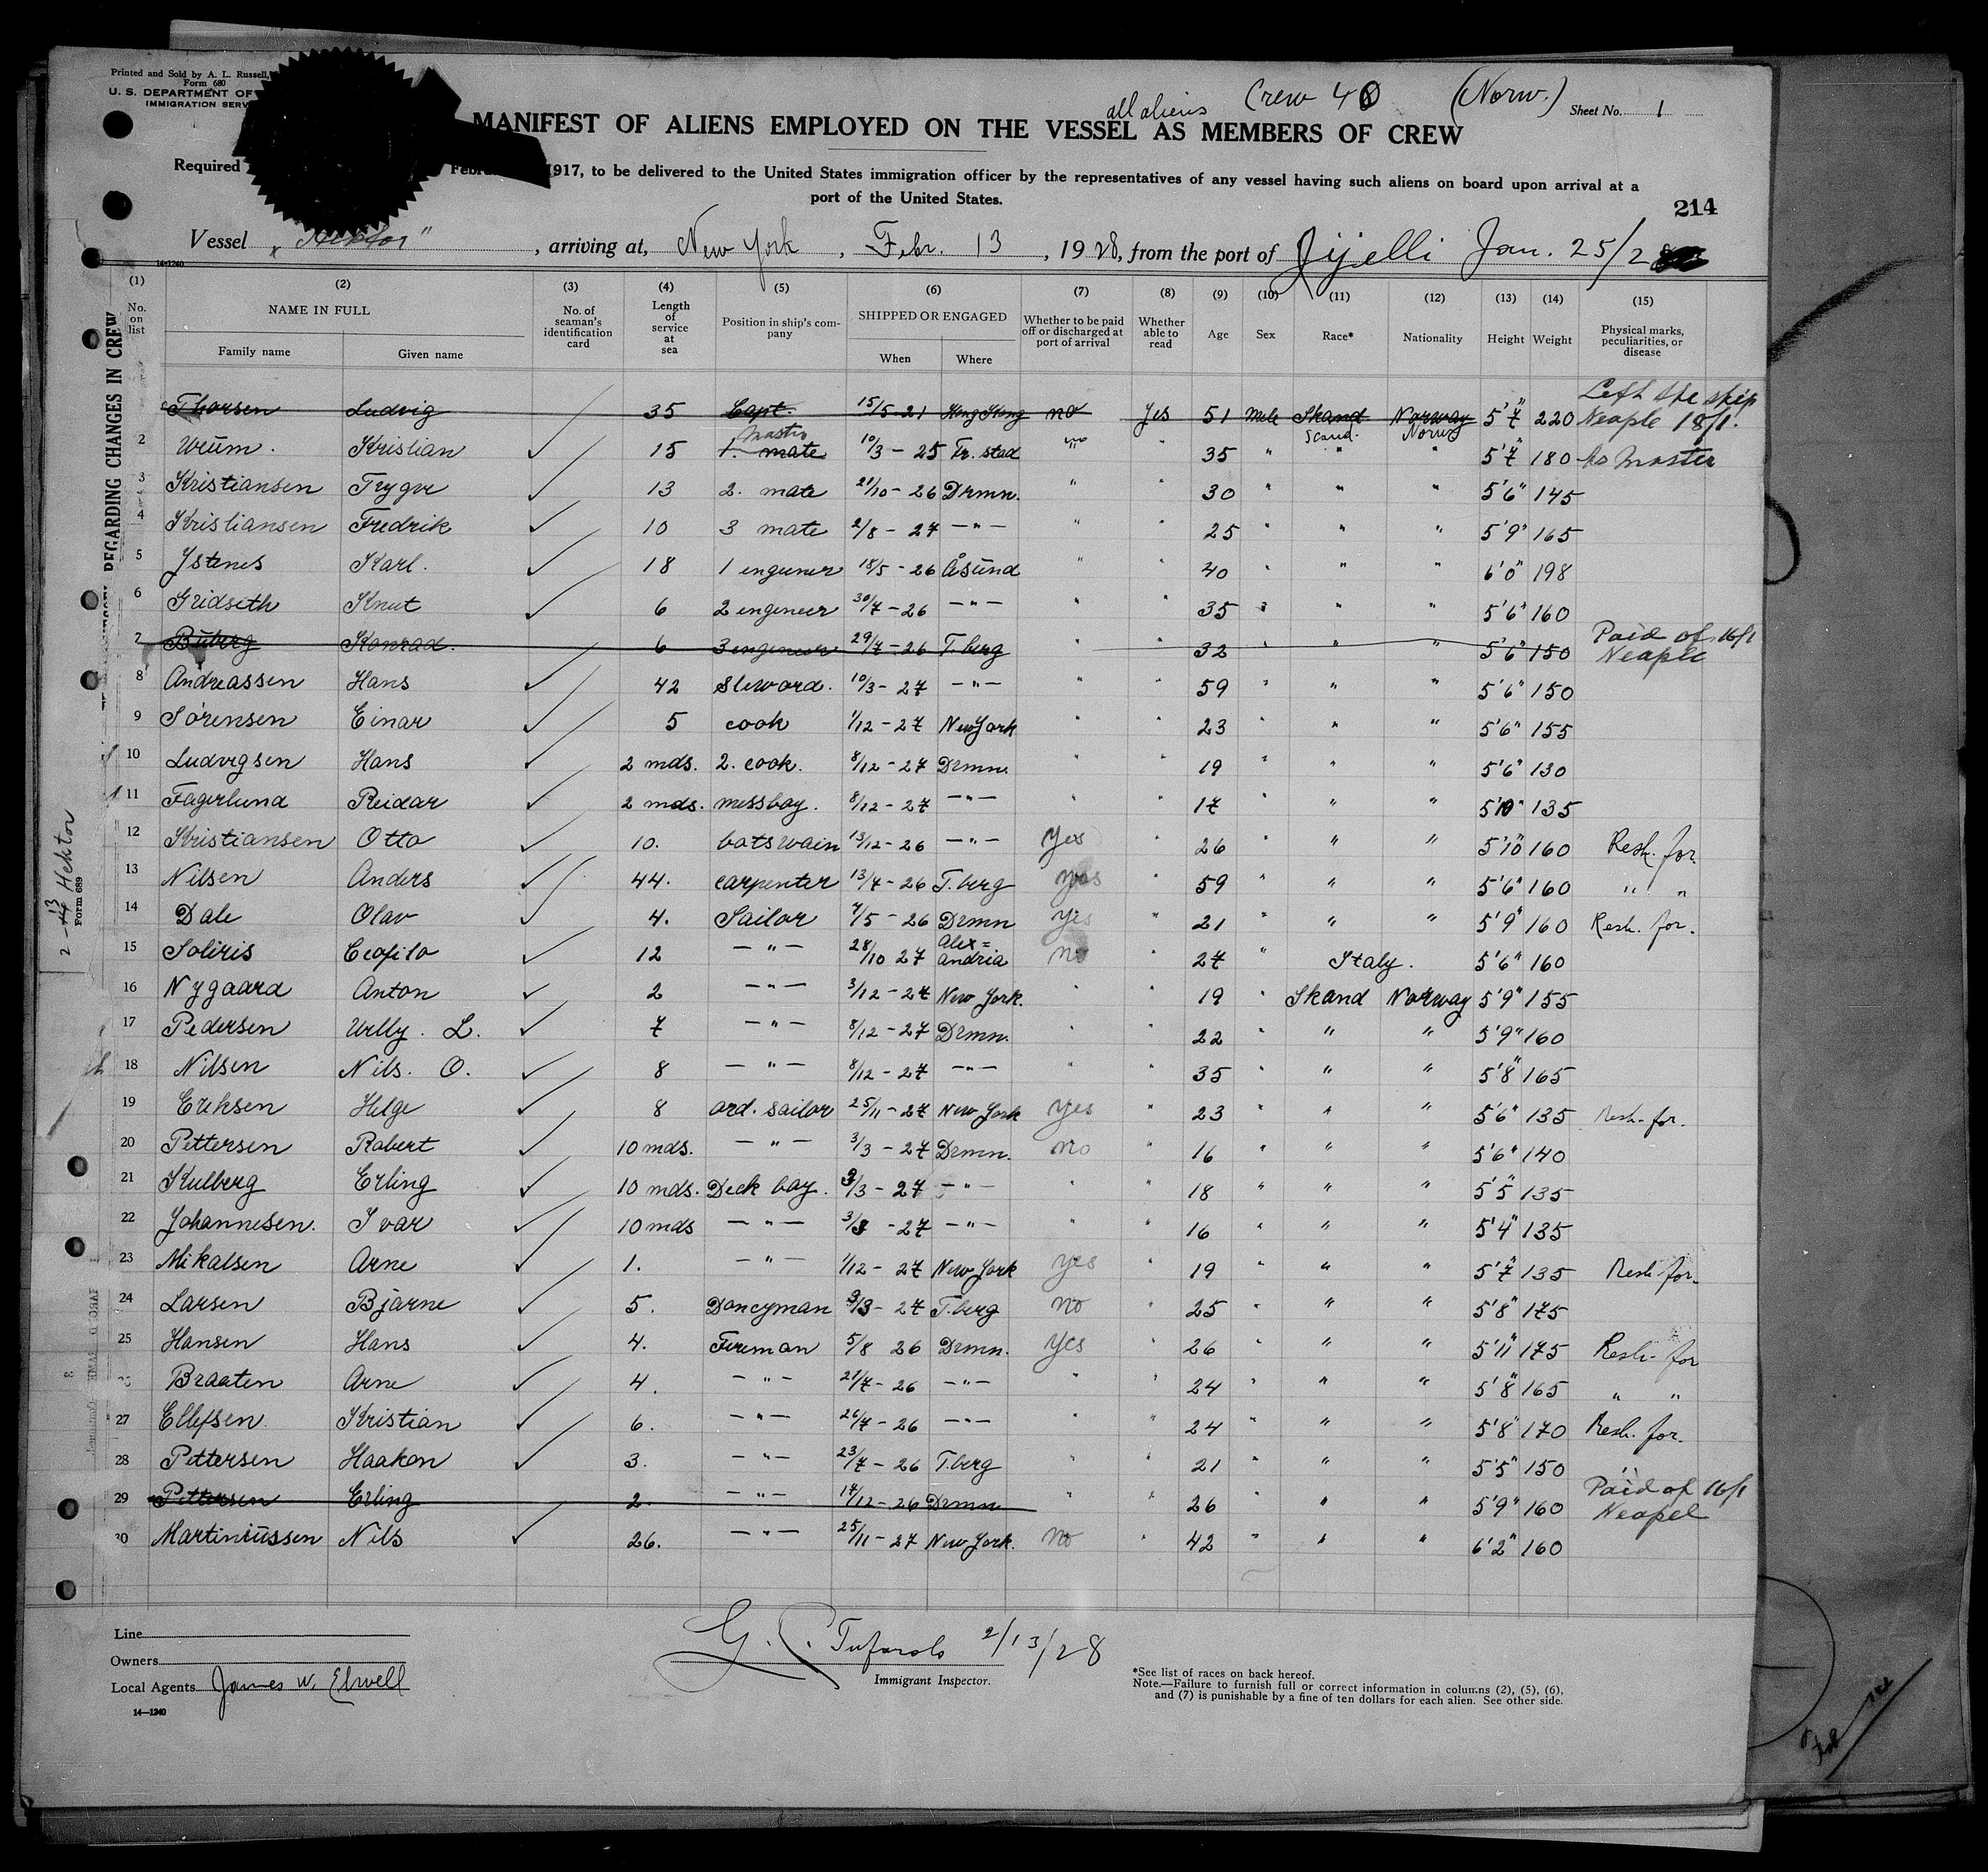 Printed and Sold by A. L. Russell,
Form 680
U. S. DEPARTMENT OF
IMMIGRATION SERV
all aliens Crew 40 (Norw.) Sheet No. 1
MANIFEST OF ALIENS EMPLOYED ON THE VESSEL AS MEMBERS OF CREW
Required Febr 1917, to be delivered to the United States immigration officer by the representatives of any vessel having such aliens on board upon arrival at a
port of the United States.
214
Vessel „Hektor" , arriving at, New York , Febr. 13 , 1928, from the port of Jijelli Jan. 25/28
14-1240
(1) (2) (3) (4) (5) (6) (7) (8) (9) (10) (11) (12) (13) (14) (15)
No. on list NAME IN FULL Family name Given name No. of seaman's identification card Length of service at sea Position in ship's company SHIPPED OR ENGAGED When Where Whether to be paid off or discharged at port of arrival Whether able to read Age Sex Race* Nationality Height Weight Physical marks, peculiarities, or disease
Thorsen Ludvig 35 Capt. 15/5-21 Hong Kong no Yes 51 Male Skand Norway 5'7" 220 Left the ship Neaple 18/1.
2 Wüm. Kristian 15 1. mate Master 10/3-25 Fr. stad no " 35 " Scand. " Norw " 5'7" 180 As Master
3 Kristiansen Trygve 13 2. mate 21/10-26 Drmn. " " 30 " " " 5'6" 145
4 Kristiansen Fredrik 10 3 mate 2/8-27 -"- " " 25 " " " 5'9" 165
5 Ystenes Karl. 18 1 engeneer 18/5-26 Åsünd " " 40 " " " 6'0" 198
6 Gridseth Knut 6 2 engeneer 30/7-26 -"- " " 35 " " " 5'6" 160
7 Büberg Konrad. 6 3 engeneer 29/7-26 T.berg " " 32 " " " 5'6" 150 Paid of 16/1 Neaple
8 Andreassen Hans 42 Steword. 10/3-27 -"- " " 59 " " " 5'6" 150
9 Sørensen Einar 5 cook 1/12-27 New York " " 23 " " " 5'6" 155
10 Ludvigsen Hans 2 mds. 2. cook. 8/12-27 Drmn. " " 19 " " " 5'6" 130
11 Fagerlund Reidar 2 mds. messboy. 8/12-27 -"- " " 17 " " " 5'10" 135
12 Kristiansen Otto 10. batswain 13/12-26 -"- Yes " 26 " " " 5'10" 160 Resh. for.
13 Nilsen Anders 44. carpenter 13/7-26 T.berg yes " 59 " " " 5'6" 160 " "
14 Dale Olav 4. Sailor 7/5-26 Drmn yes " 21 " " " 5'9" 160 Resh. for.
15 Soliris Ceofilo 12 -"- 28/10 27 Alex=andria no " 27 " Italy. 5'6" 160
16 Nygaard Anton 2 -"- 3/12-27 New York. " " 19 " Skand Norway 5'9" 155
17 Pedersen Willy. L. 7 -"- 8/12-27 Drmn. " " 22 " " " 5'9" 160
18 Nilsen Nils. O. 8 -"- 8/12-27 -"- " " 35 " " " 5'8" 165
19 Eriksen Helge 8 ord. sailor 25/11-27 New York Yes " 23 " " " 5'6" 135 Resh. for.
20 Pettersen Robert 10 mds. -"- 3/3-27 Drmn. no " 16 " " " 5'6" 140
21 Kulberg Erling 10 mds. Deck boy. 3/3-27 -"- " " 18 " " " 5'5" 135
22 Johannesen. Ivar 10 mds -"- 3/3-27 -"- " " 16 " " " 5'4" 135
23 Mikalsen Arne 1. -"- 1/12-27 New York yes " 19 " " " 5'7" 135 Resh. for.
24 Larsen Bjarne 5. Donceyman 3/3-27 T.berg no " 25 " " " 5'8" 175
25 Hansen Hans 4. Fireman 5/8 26 Drmn. Yes " 26 " " " 5'11" 175 Resh. for
Braaten Arne 4. -"- 21/7-26 -"- " " 24 " " " 5'8" 165 " "
27 Ellefsen Kristian 6. -"- 26/7-26 -"- " " 24 " " " 5'8" 170 Resh. for.
28 Pettersen Haakon 3. -"- 23/7-26 T.berg " " 21 " " " 5'5" 150 "
29 Pettersen Erling 2. -"- 17/12-26 Drmn " " 26 " " " 5'9" 160 Paid of 16/1 Neapel
30 Martiniüssen Nils 26. -"- 25/11-27 New York. no " 42 " " " 6'2" 160
REGARDING CHANGES IN CREW
2-13 Hektor
Form 689
Line
Owners
Local Agents James W. Elwell
14—1240
G. C. Tufarolo 2/13/28
Immigrant Inspector.
*See list of races on back hereof.
Note.—Failure to furnish full or correct information in columns (2), (5), (6),
and (7) is punishable by a fine of ten dollars for each alien. See other side.